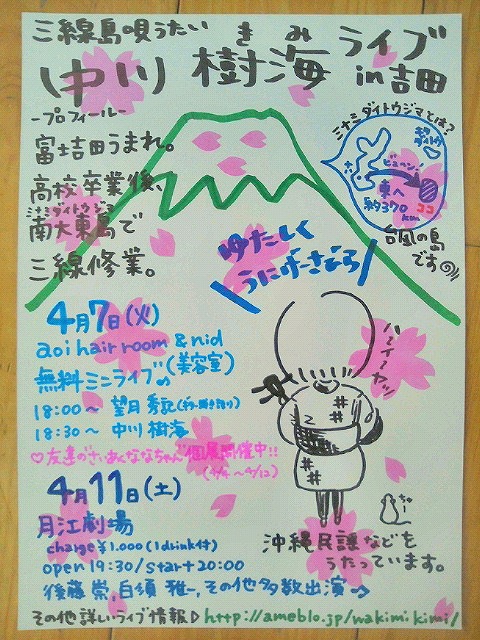 三線島唄うたい
きみ
中川 樹海 ライブ
in吉田
-プロフィール-
富士吉田うまれ。
高校卒業後、
ミナミダイトウジマ
南大東島で
三線修業。
ミナミダイトウジマとは?
ビューン
東へ
約370km
ココ
台風の島
です
ゆたしく
うにげーさびら
4月7日(火)
aoi hair room & nid
(美容室)
無料ミニライブ♪
18:00〜 望月 秀記(ギター弾き語り)
18:30〜 中川 樹海
♡友達のさいあくななちゃん個展開催中!!
(4/4 〜4/12)
4月11日(土)
月江劇場
charge ¥1.000 (1drink付)
open 19:30/start 20:00
後藤 崇,白須 雅一,その他多数出演
ハーイーヤッ
ちゅー
沖縄民謡などを
うたっています。
その他詳しいライブ情報▷http://ameblo.jp/makimikimi/